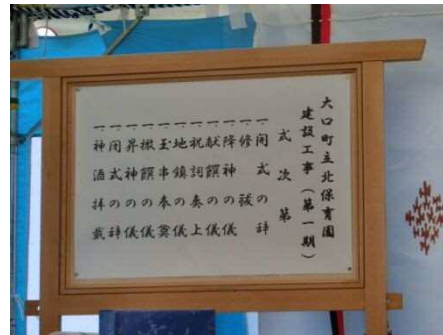 大口町立北保育園
建設工事(第一期)
式次第
一、開式の辞
一、修祓
一、降神の儀
一、献饌の儀
一、祝詞奏上
一、地鎮の儀
一、玉串奉奠
一、撤饌の儀
一、昇神の儀
一、閉式の辞
一、神酒拝戴